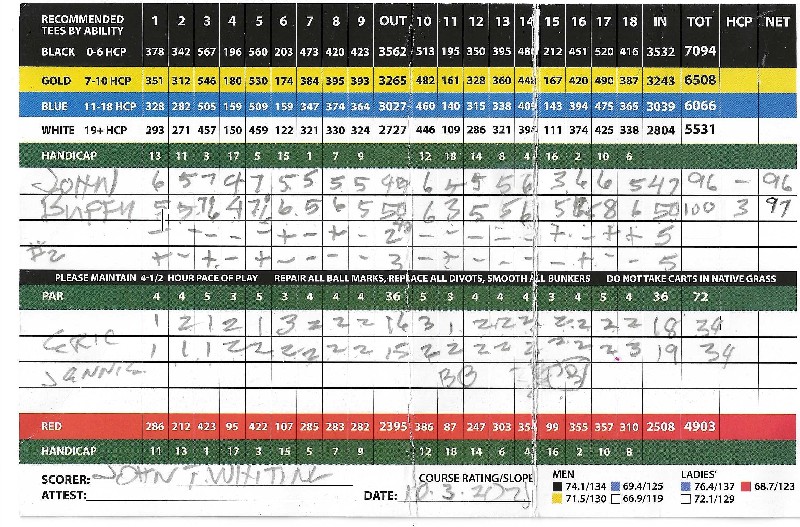 RECOMMENDED TEES BY ABILITY 1 2 3 4 5 6 7 8 9 OUT 10 11 12 13 14 15 16 17 18 IN TOT HCP NET
BLACK 0-6 HCP 378 342 567 196 560 203 473 420 423 3562 513 195 350 395 480 212 451 520 416 3532 7094
GOLD 7-10 HCP 351 312 546 180 530 174 384 395 393 3265 482 161 328 360 448 167 420 490 387 3243 6508
BLUE 11-18 HCP 328 292 505 159 509 159 347 374 364 3027 460 140 315 338 409 143 394 475 365 3039 6066
WHITE 19+ HCP 293 271 457 150 459 122 321 330 324 2727 446 109 286 321 394 111 374 425 338 2804 5531
HANDICAP 13 11 3 17 5 15 1 7 9 12 18 14 8 4 16 2 10 6
JOHN 6 5 7 4 7 5 5 5 5 6 5 5 6 3 6 6 5 47 96 - 96
BUFFY 5 5 4 6 5 6 5 50 6 3 5 5 6 5 8 6 50 100 3 97
- - - - - + - + - 2 - - - - - + - + + 5
#2 + - + - + - - - - 3 - - - - - + + + - 5
PLEASE MAINTAIN 4-1/2 HOUR PACE OF PLAY REPAIR ALL BALL MARKS, REPLACE ALL DIVOTS, SMOOTH ALL BUNKERS DO NOT TAKE CARTS IN NATIVE GRASS
PAR 4 4 5 3 5 3 4 4 4 36 5 3 4 4 4 3 4 5 4 36 72
1 2 1 2 1 3 2 2 2 16 3 1 2 2 2 2 2 2 2 18 34
ERIC 1 1 1 2 2 2 2 2 2 15 2 2 2 2 2 2 2 2 3 19 34
JANNIE BB
RED 286 212 423 95 422 107 285 283 282 2395 386 87 247 303 354 99 355 357 310 2508 4903
HANDICAP 11 13 1 17 3 15 5 7 9 12 18 14 6 4 16 2 10 8
SCORER: JOHN T. WHITING COURSE RATING/SLOPE MEN 74.1/134 69.4/125 71.5/130 66.9/119 LADIES' 76.4/137 68.7/123 72.1/129
ATTEST: DATE: 10.3.2021